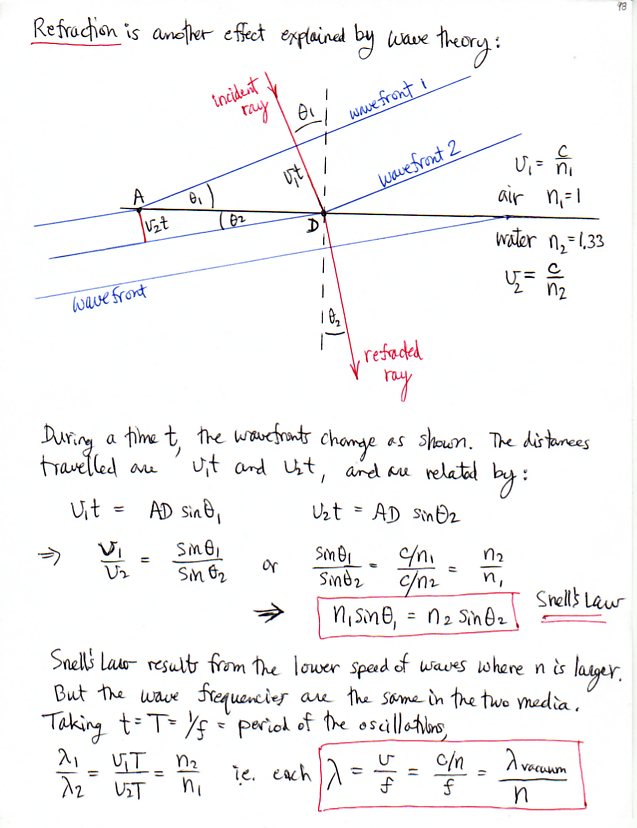 93
Refraction is another effect explained by wave theory:
incident
ray
θ1
wavefront 1
v1t
wavefront 2
v1 = c/n1
A
θ1
air n1=1
v2t
θ2
D
water n2=1.33
v2 = c/n2
wavefront
θ2
refracted
ray
During a time t, the wavefronts change as shown. The distances
travelled are v1t and v2t, and are related by:
v1t = AD sinθ1 v2t = AD sinθ2
⇒ v1/v2 = sinθ1/sinθ2 or sinθ1/sinθ2 = (c/n1)/(c/n2) = n2/n1
⇒ n1 sinθ1 = n2 sinθ2 Snell's Law
Snell's Law results from the lower speed of waves where n is larger.
But the wave frequencies are the same in the two media.
Taking t = T = 1/f = period of the oscillations,
λ1/λ2 = v1T/v2T = n2/n1 i.e. each λ = v/f = (c/n)/f = λvacuum/n